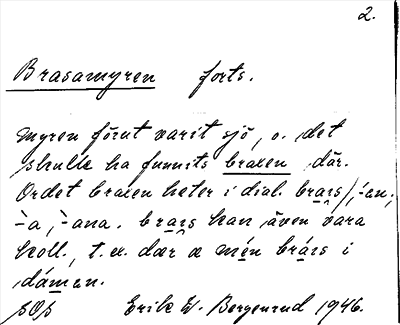 2.
Brasamyren forts.
Myren förut varit sjö, o. det
skulle ha funnits braxen där.
Ordet braxen heter i dial. brars/, -en;
-a, -ana. brars kan även vara
koll., t. ex. dær æ mén brárs i
dámen.
SOS Erik W. Bergenrud 1946.